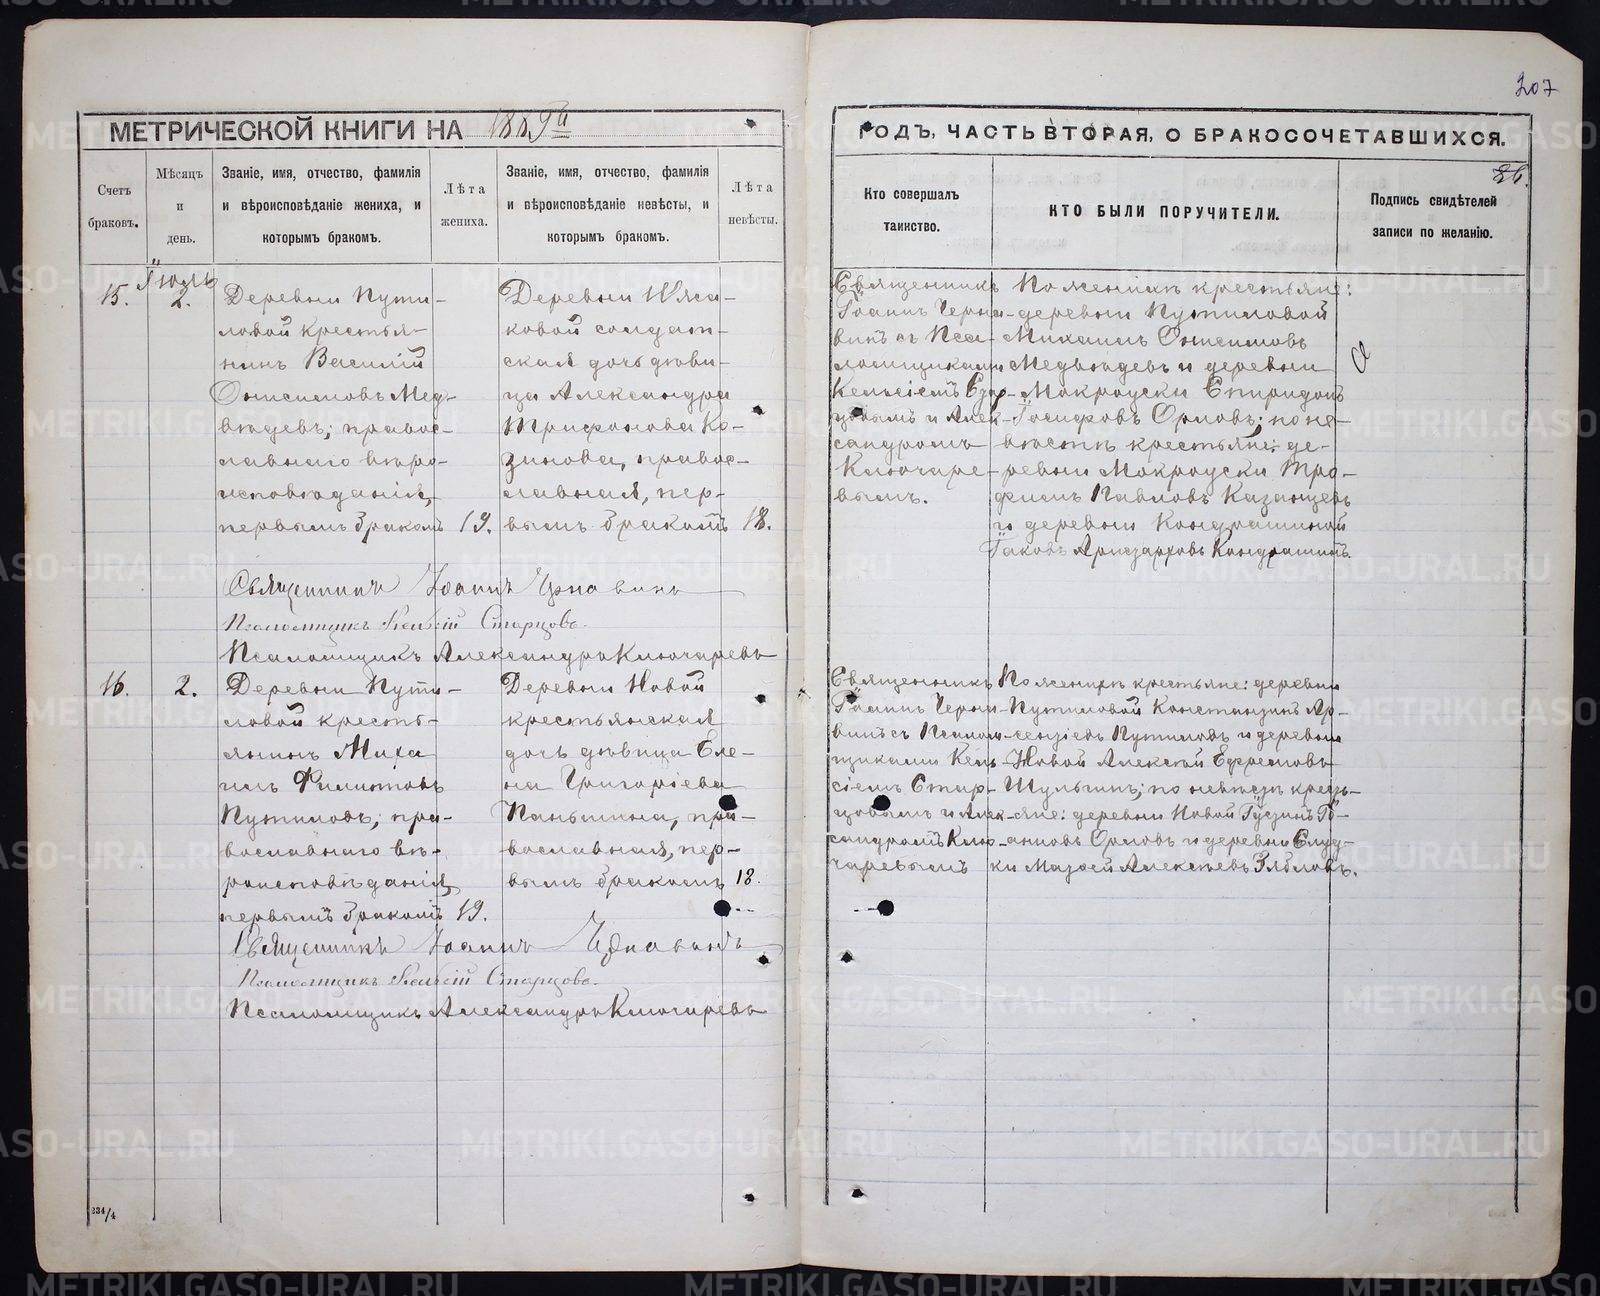 207
МЕТРИЧЕСКОЙ КНИГИ НА 1889й
ГОДЪ, ЧАСТЬ ВТОРАЯ, О БРАКОСОЧЕТАВШИХСЯ.
26.
Счетъ браковъ.
Мѣсяцъ и день.
Званіе, имя, отчество, фамилія
и вѣроисповѣданіе жениха, и
которымъ бракомъ.
Лѣта
жениха.
Званіе, имя, отчество, фамилія
и вѣроисповѣданіе невѣсты, и
которымъ бракомъ.
Лѣта
невѣсты.
Кто совершалъ
таинство.
КТО БЫЛИ ПОРУЧИТЕЛИ.
Подпись свидѣтелей
записи по желанію.
Іюль
15.
2.
Деревни Пути-
ловой крестья-
нинъ Василій
Онисимовъ Мед-
вѣдевъ; правос-
лавнаго вѣро-
исповѣданія,
первымъ бракомъ
19.
Деревни
ковой солдат-
ская дочь дѣви-
ца Александра
Трифонова Ко-
зинова, правос-
лавная, пер-
вымъ бракомъ
18.
Священникъ
Іоаннъ Черна-
винъ съ Пса-
ломщиками
Кельсіемъ Стар-
цовымъ и Алек-
сандромъ
Ключаре-
вымъ.
По женихѣ крестьяне:
деревни Путиловой
Михаилъ Онисимовъ
Медвѣдевъ и деревни
Мокроуски Спиридонъ
Іосифовъ Орловъ; по не-
вѣстѣ крестьяне: де-
ревни Мокроуски Тро-
фимъ Павловъ Казанцевъ
и деревни Кондрашиной
Іаковъ Аристарховъ Кондрашинъ.
Священникъ Іоаннъ Чернавинъ
Псаломщикъ Кельсій Старцовъ.
Псаломщикъ Александръ Ключаревъ
16.
2.
Деревни Пути-
ловой кресть-
янинъ Миха
илъ Филиповъ
Путиловъ; пра-
вославнаго вѣ-
роисповѣданія,
первымъ бракомъ
19.
Деревни Новой
крестьянская
дочь дѣвица Еле-
на Григоріева
Паньшина, пра-
вославная, пер-
вымъ бракомъ
18.
Священникъ
Іоаннъ Черна-
винъ съ Псалом-
щиками Кель-
сіемъ Стар-
цовымъ и Алек-
сандромъ Клю-
чаревымъ
По женихѣ крестьяне: деревни
Путиловой Константинъ Ар-
сеніевъ Путиловъ и деревни
Новой Алексѣй Ефремовъ
Шульгинъ; по невѣстѣ кресть-
яне: деревни Новой Іустинъ Іо-
анновъ Орловъ и деревни
ки Алексѣевъ
Священникъ Іоаннъ Чернавинъ
Псаломщикъ Кельсій Старцовъ.
Псаломщикъ Александръ Ключаревъ
234/4